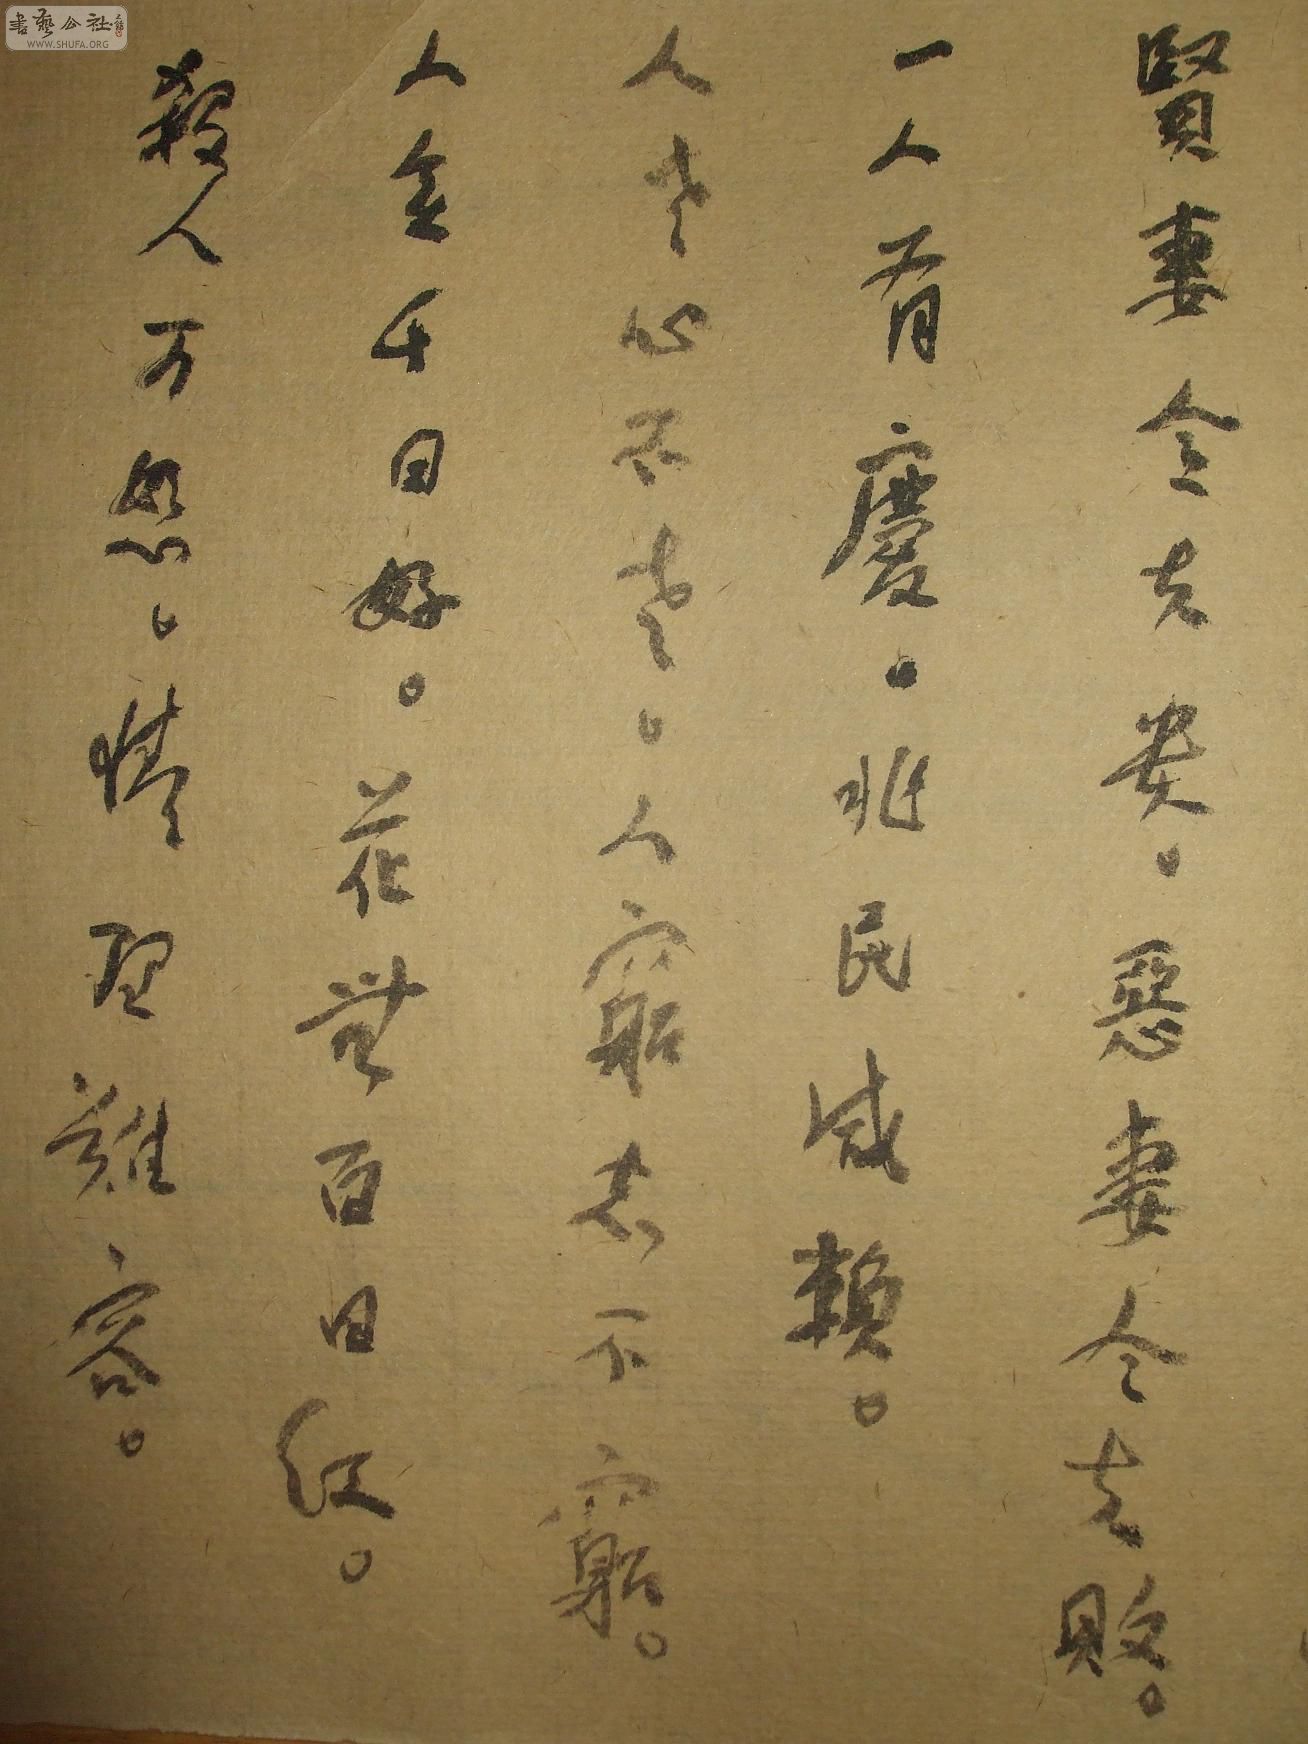 書藝公社
WWW.SHUFA.ORG
賢妻令夫贵。惡妻令夫敗。
一人有慶。兆民咸賴。
人老心不老。人窮志不窮。
人無千日好。花無百日紅。
殺人可恕。情理難容。